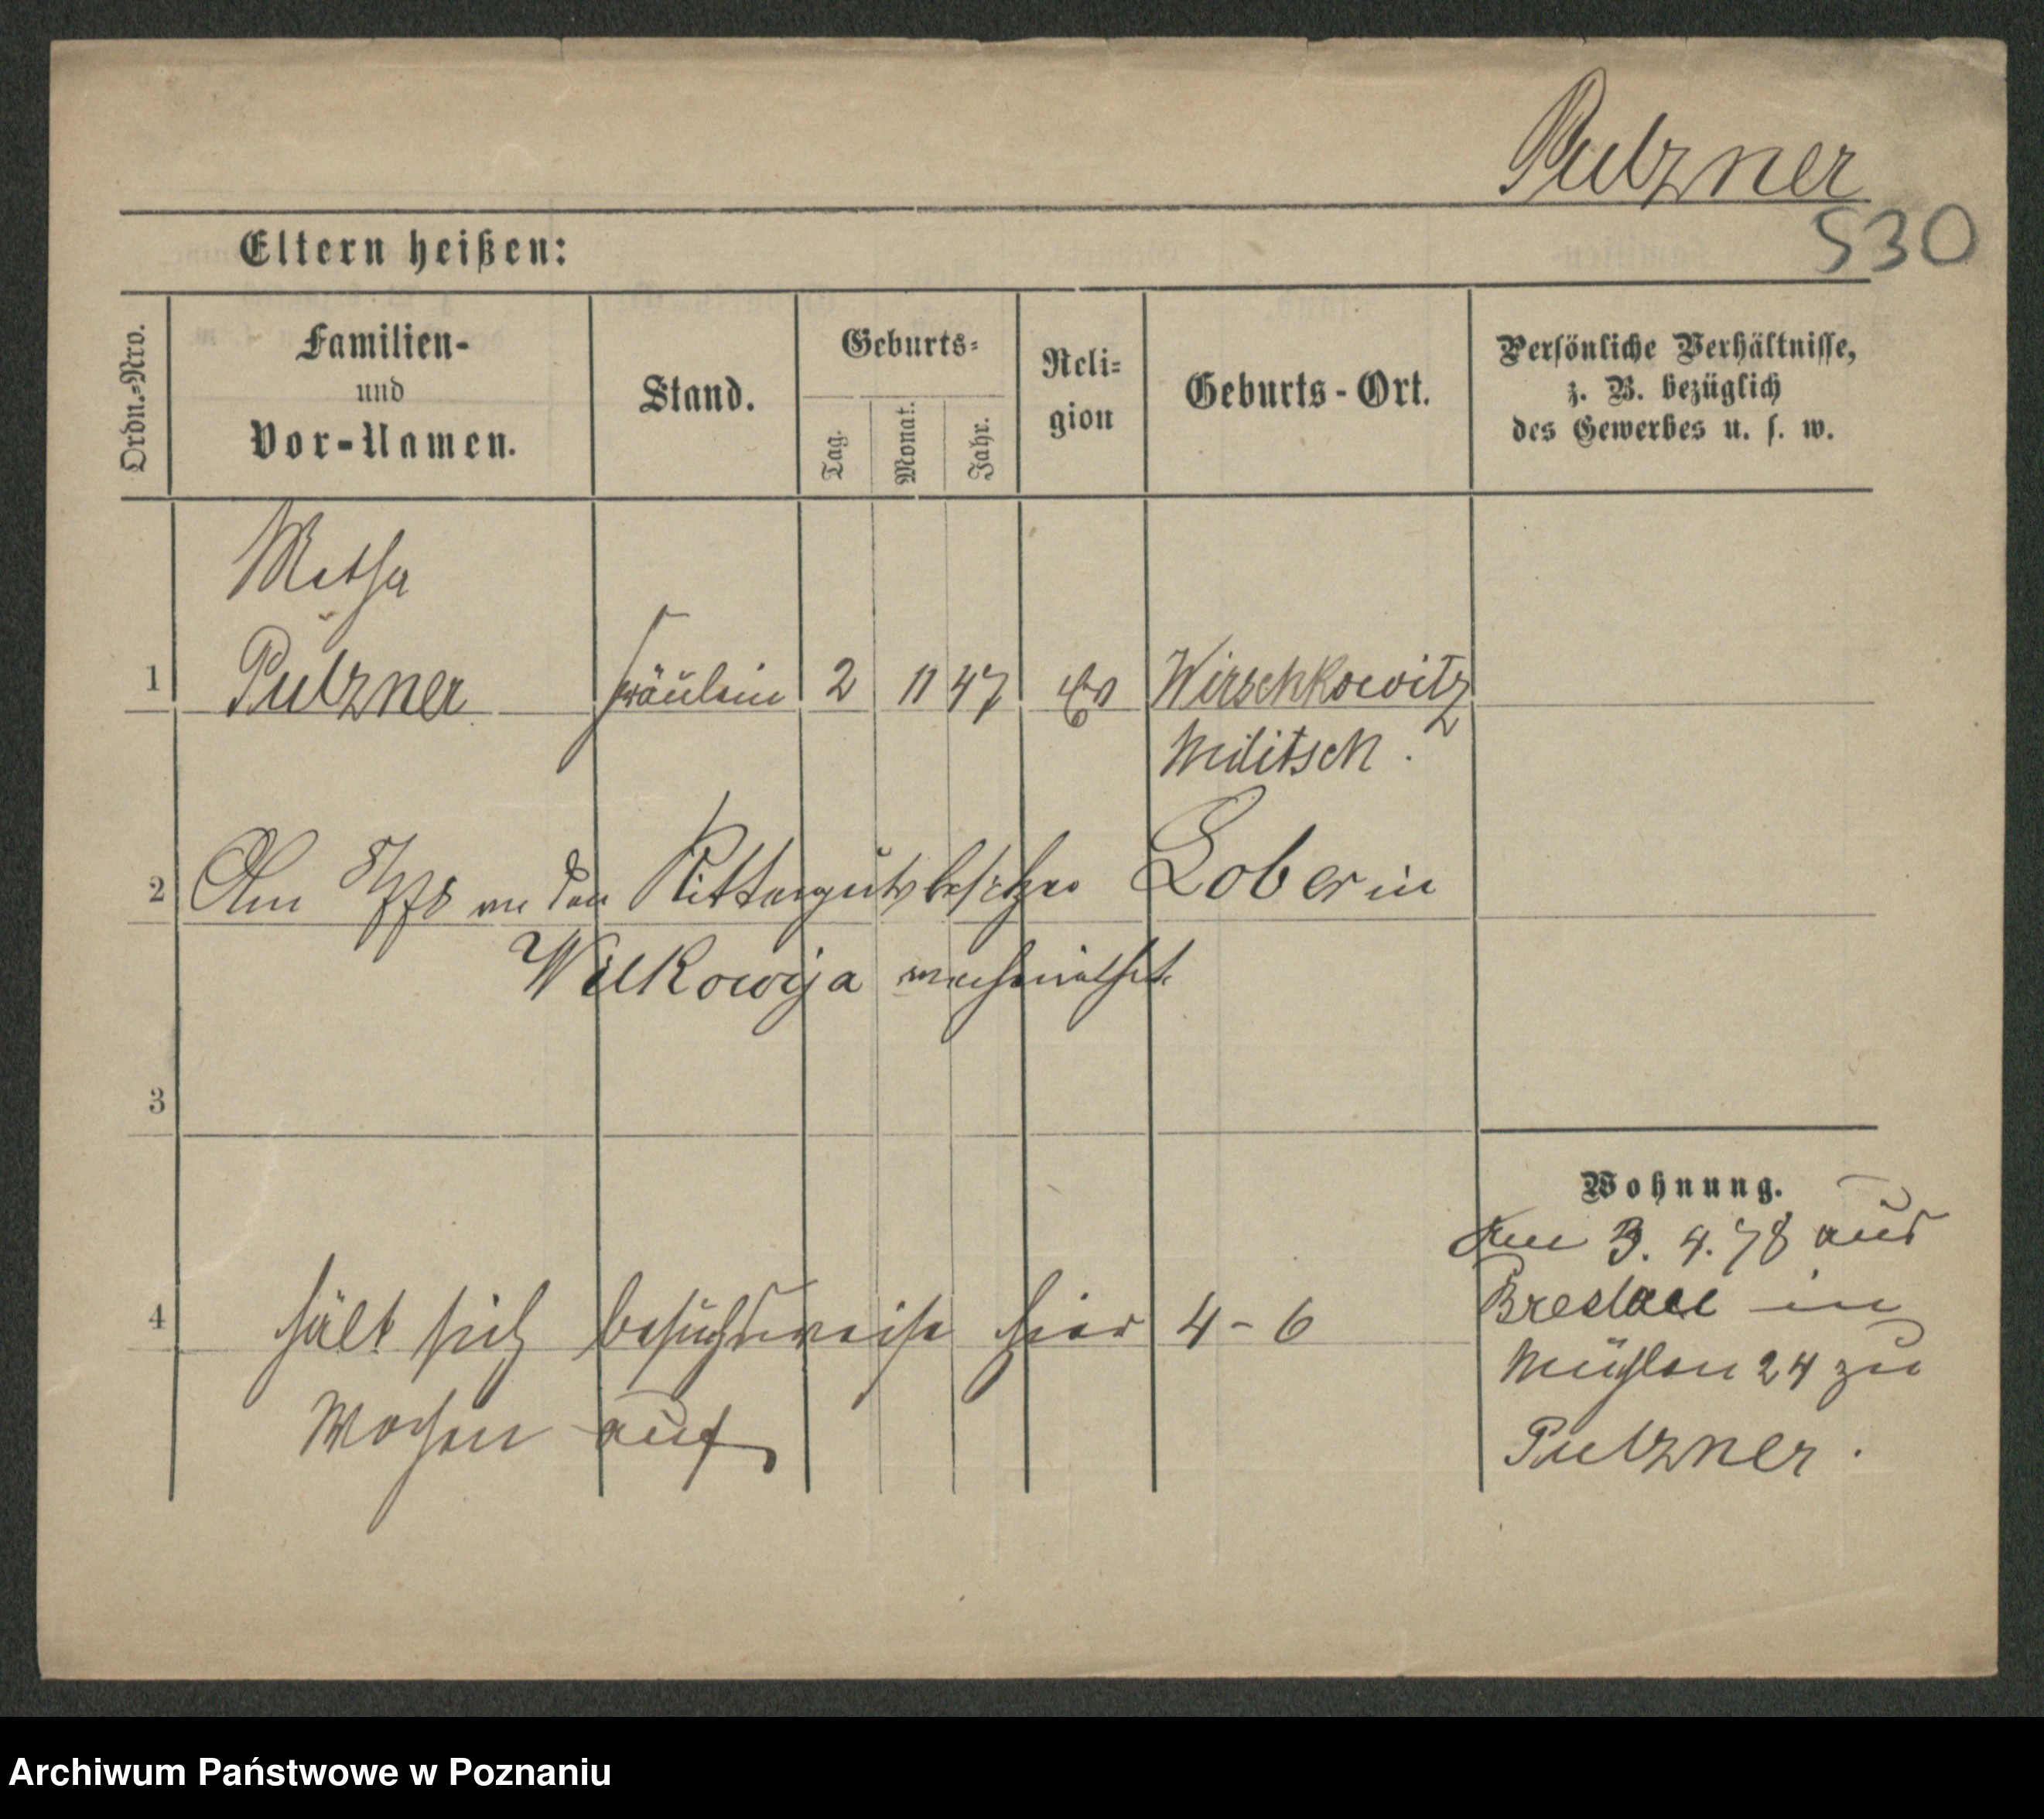 Putzner
530
Eltern heißen:
Ordn.-Nro.
Familien-
und
Vor-Namen.
Stand.
Geburts-
Tag.
Monat.
Jahr.
Reli-
gion
Geburts-Ort.
Persönliche Verhältnisse,
z. B. bezüglich
des Gewerbes u. s. w.
Metha
1 Putzner Fräulein 2 11 47 Ev Wirschkowitz
Militsch.
2 Am 8/7 78 an den Rittergutsbesitzer Lober in
Wilkowja verheirathet.
3
Wohnung.
Am 3. 4. 78 aus
Breslau in
Mühlen 24 zu
Putzner.
4 hält sich besuchsweise hier 4-6
Wochen auf
Archiwum Państwowe w Poznaniu